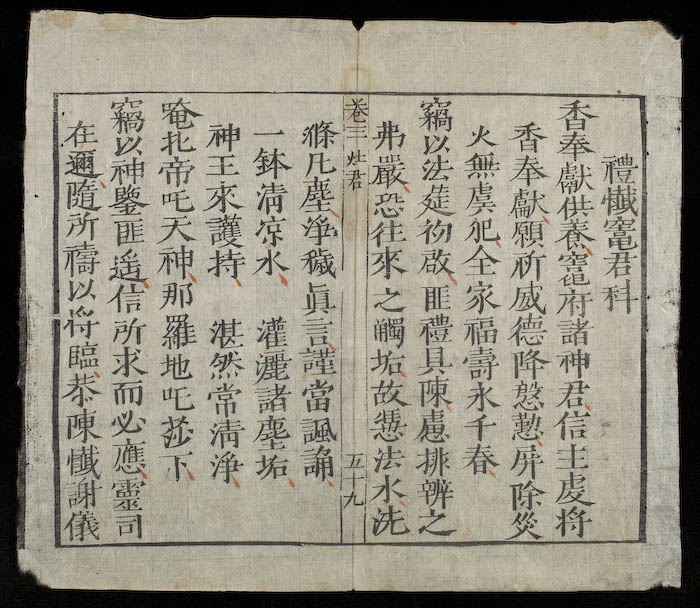 禮懺竈君科
香奉獻供養竈府諸神君信主虔將
香奉獻願祈威德降慇懃屏除災
火無虞犯全家福壽永千春
竊以法筵初啟匪禮具陳慮排辨之
弗嚴恐往來之觸垢故憑法水洗
卷三 灶君 五十九
滌凡塵淨穢眞言謹當諷誦
一鉢清凉水 灌灑諸塵垢
神王來護持 湛然常清淨
唵扎帝吒天神那羅地吒莎下
竊以神鑒匪遙信所求而必應靈司
在邇隨所禱以將臨恭陳懺謝儀